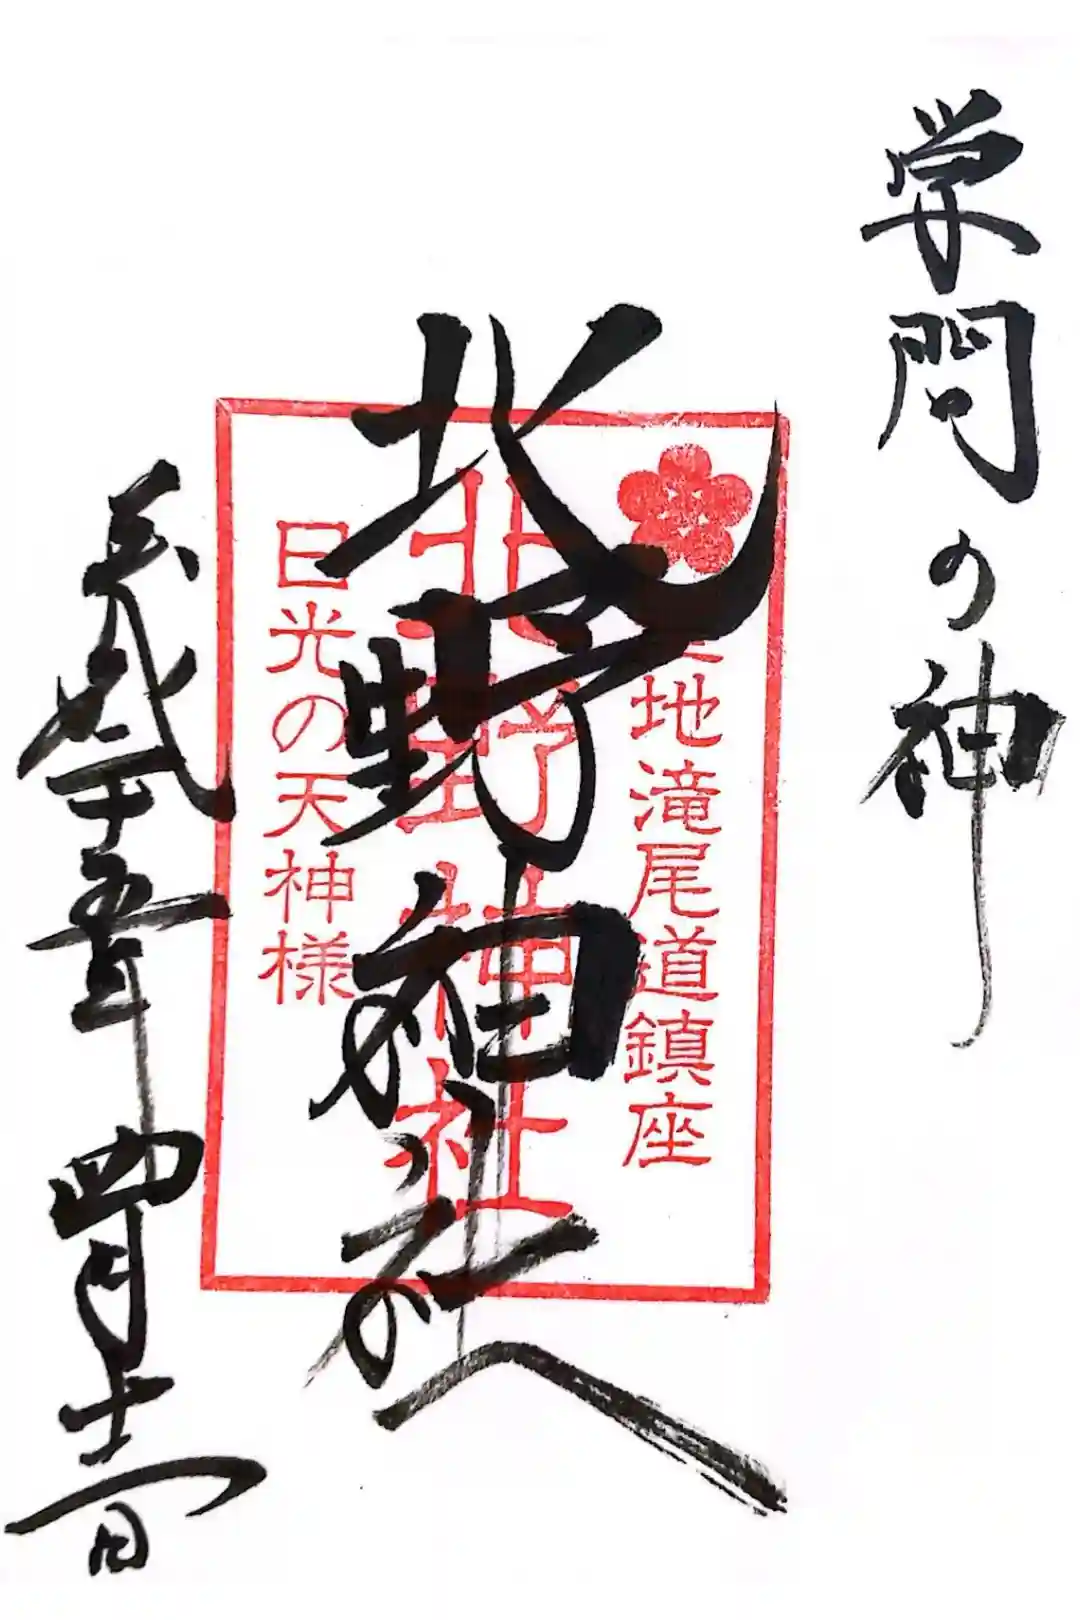 学問の神
地滝尾道鎮座
北野神社
北野神社
日光の天神様
平成二十五年四月